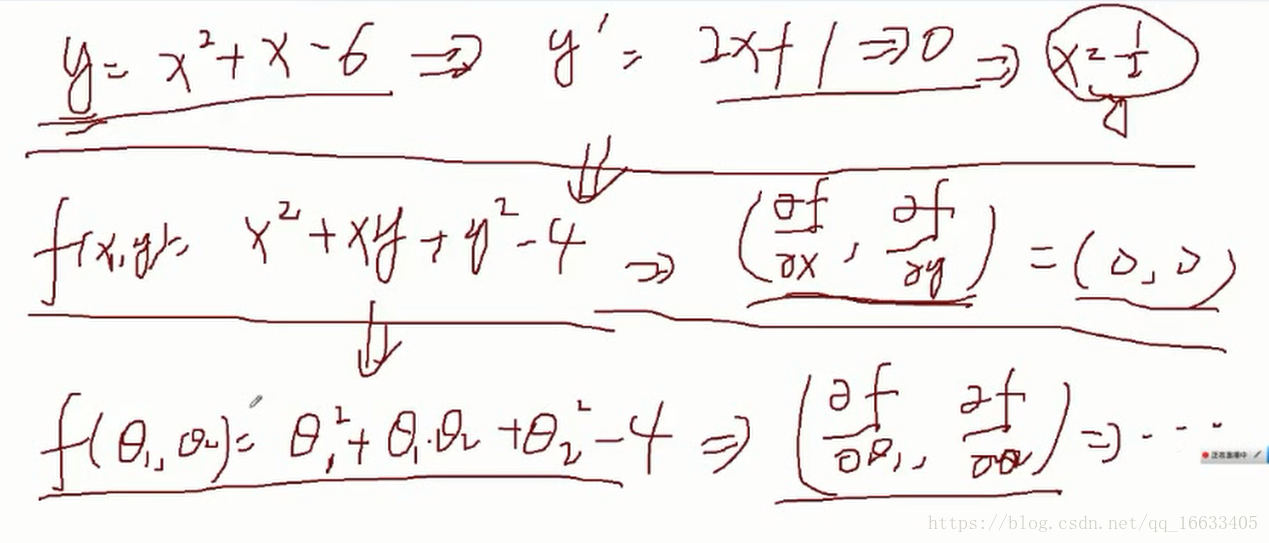 y = x² + x - 6 ⇒ y' = 2x+1 ⇒ 0 ⇒ x = -1/2
f(x,y) = x² + xy + y² - 4 ⇒ (∂f/∂x, ∂f/∂y) = (0, 0)
f(θ₁, θ₂) = θ₁² + θ₁·θ₂ + θ₂² - 4 ⇒ (∂f/∂θ₁, ∂f/∂θ₂) ⇒ ····
正在直播中
https://blog.csdn.net/qq_16633405